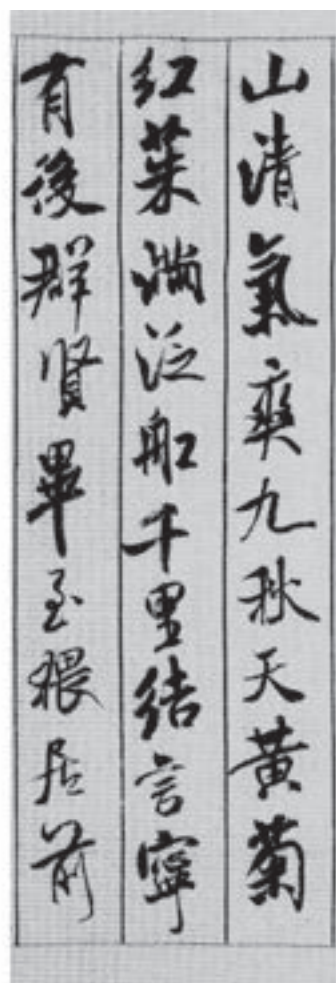 山清氣爽九秋天黄菊
红茱滿泛船千里结言寧
有後群贤畢至猥居前